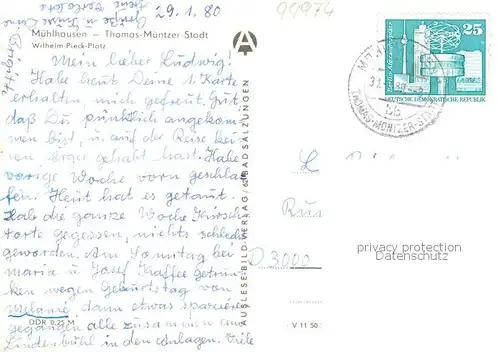 29.1.80
99974
Mühlhausen — Thomas-Müntzer-Stadt
Wilhelm-Pieck-Platz
Mein lieber Ludwig!
Habe heut Deine 1. Karte
erhalten, mich gefreut. Gut
daß Du pünktlich angekom-
men bist, u. auf der Reise kei-
nen Ärger gehabt hast. Habe
vorige Woche vorn geschla-
fen. Heut hat es getaut.
Hab die ganze Woche Kirsch-
torte gegessen, nichts schlecht
geworden. Am Sonntag bei
Maria u. Josef Kaffee getrun-
ken wegen Geburtstag von
Melanie, dann etwas spazieren
gegangen alle zusammen am
Lindenbühl in den Anlagen. Viele
Grüße u.
Brigitte
DDR 0,25 M
AUSLESE-BILD-VERLAG / 62 BAD SALZUNGEN
V 11 50
25
DEUTSCHE DEMOKRATISCHE REPUBLIK
THOMAS-MÜNTZER-STADT
D 3000
privacy protection
Datenschutz